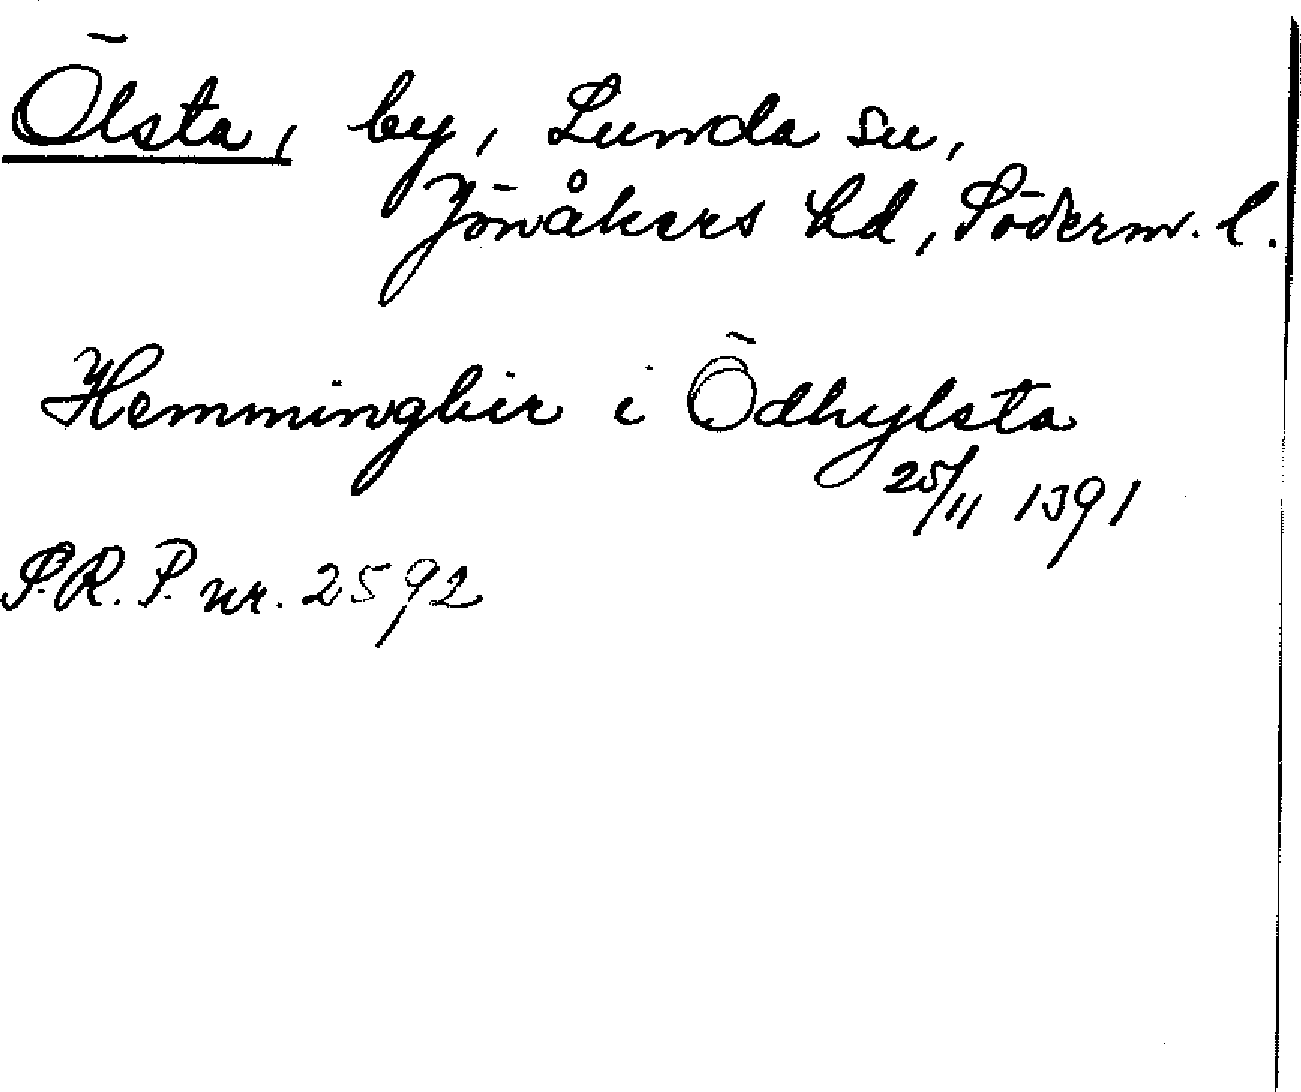 Ölsta, by, Lunda sn,
Jönåkers hd, Söderm. l.
Hemmingbir i Ödhylsta
25/11 1391
S.R.P. nr. 2592